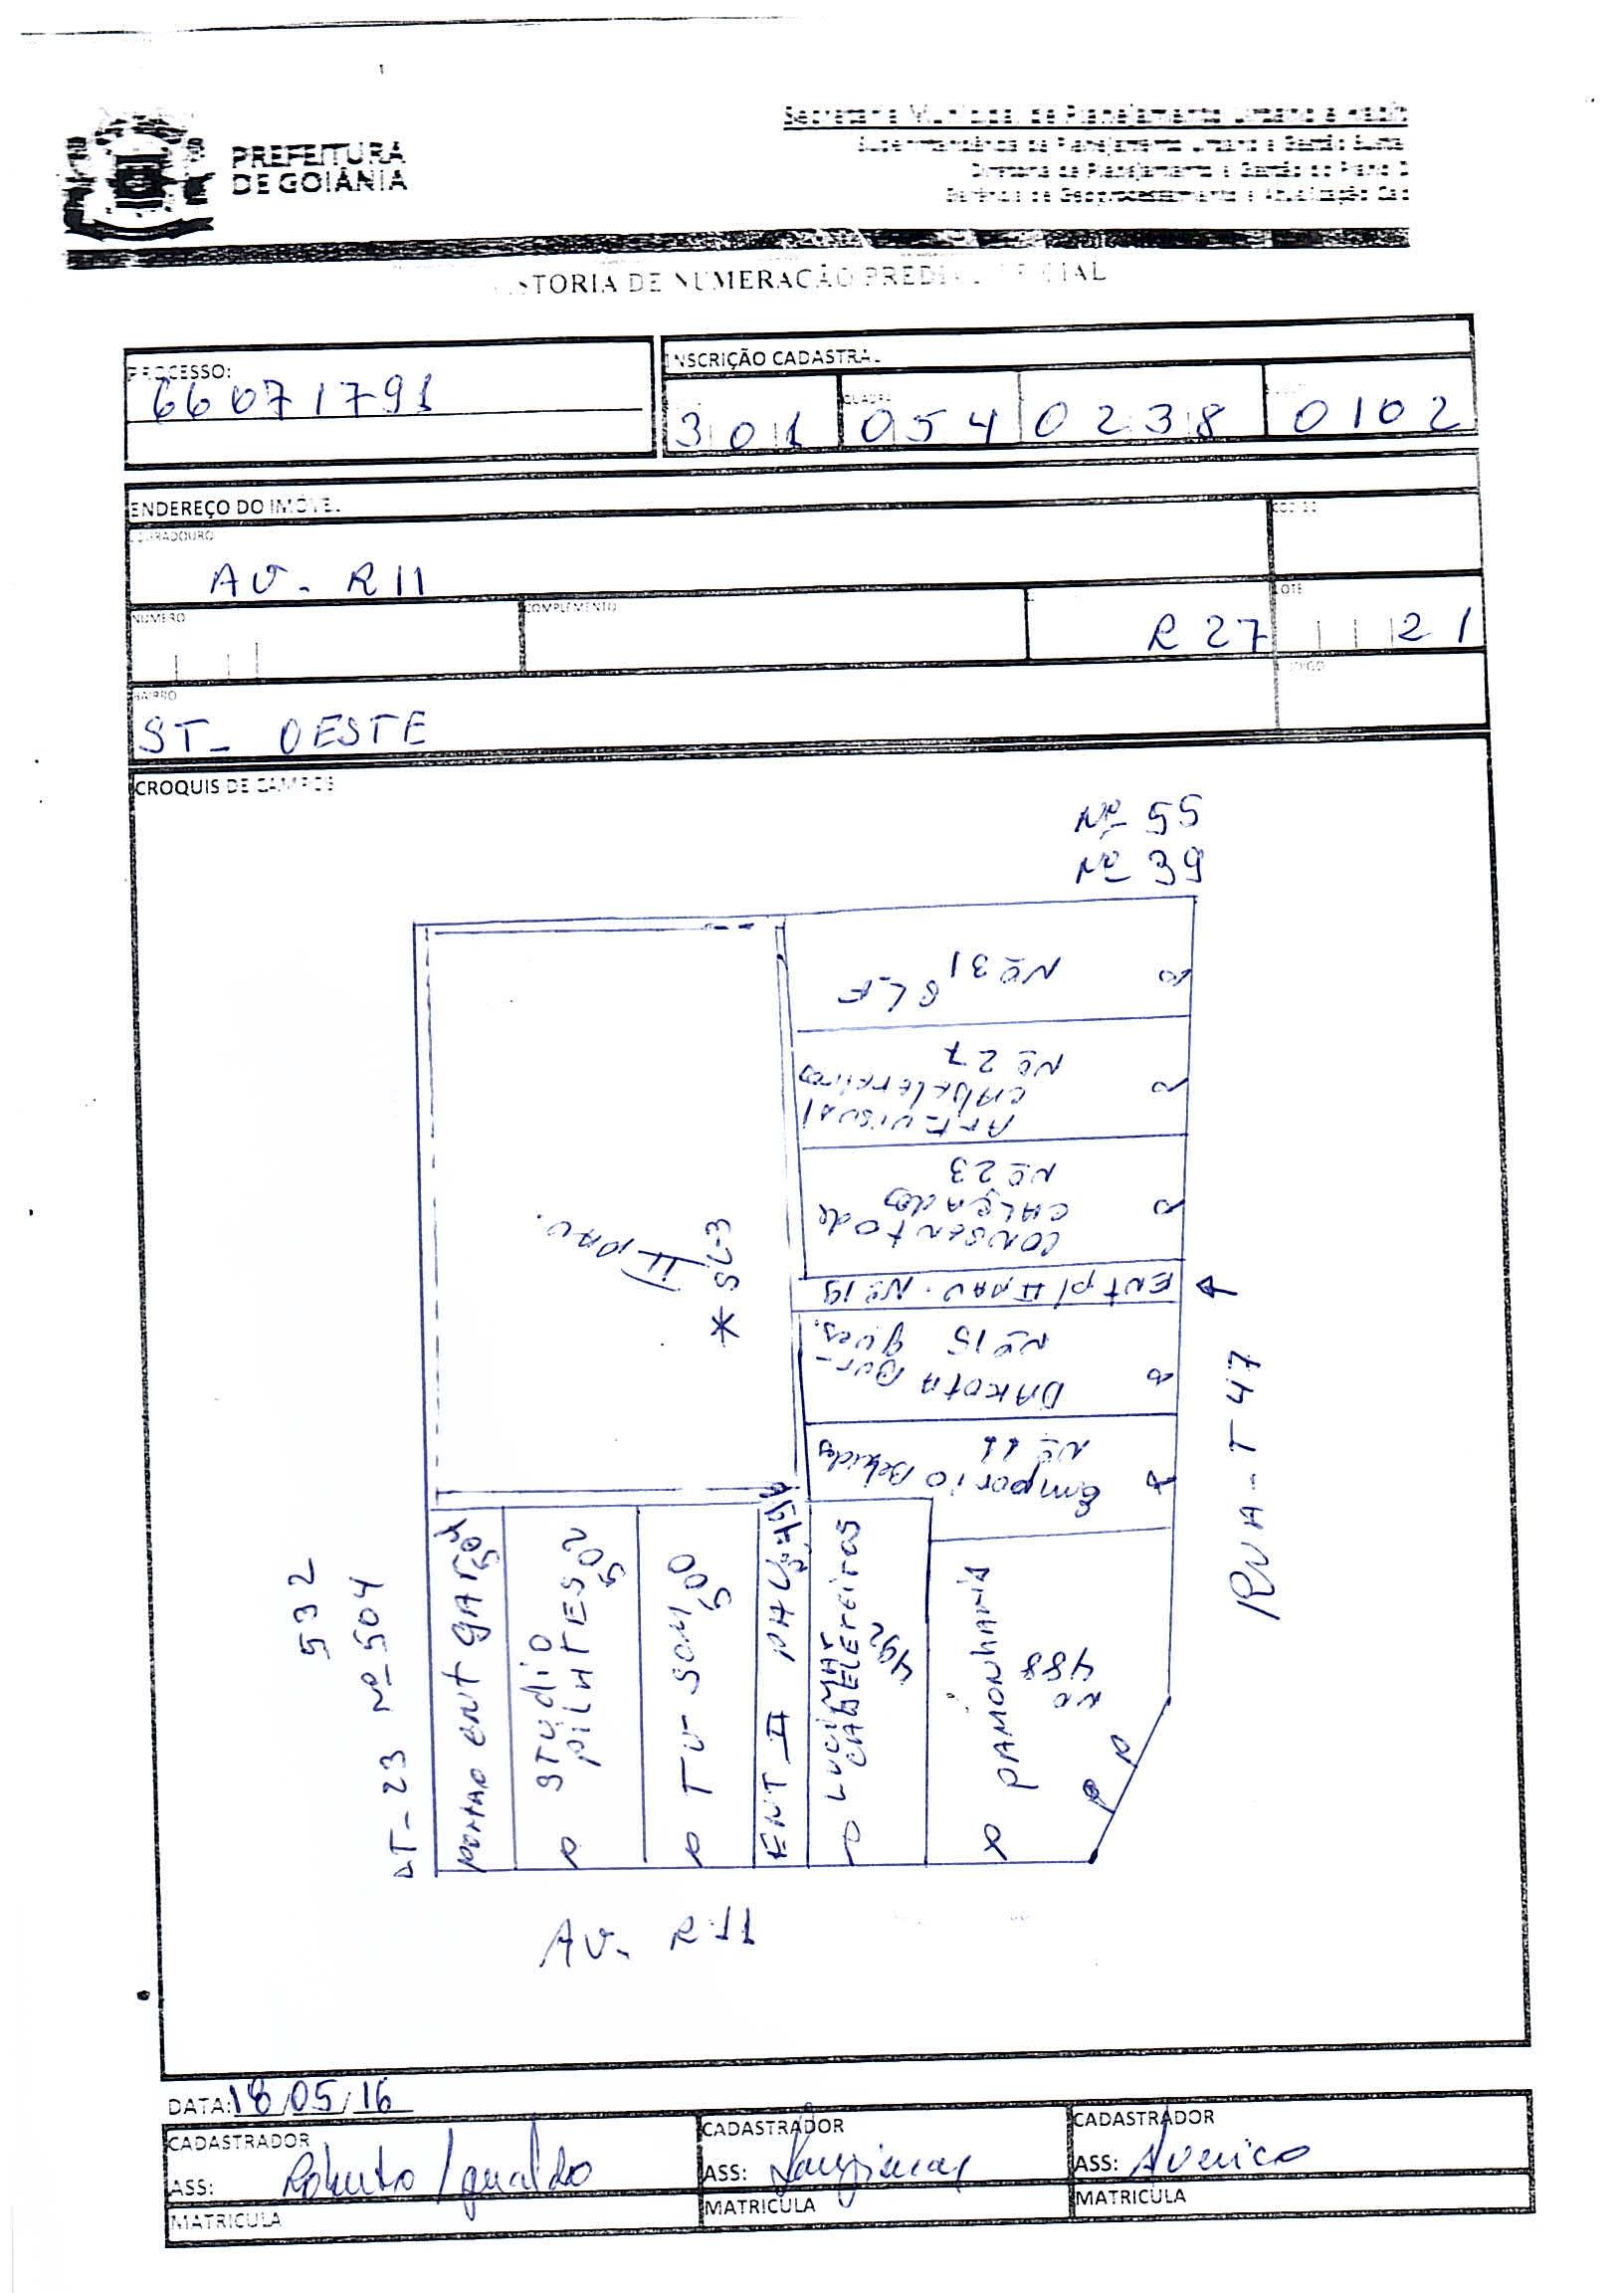 PREFEITURA
DE GOIÂNIA
Secretaria Municipal de Planejamento Urbano e Habit
Superintendência de Planejamento Urbano e Gestão Suste
Diretoria de Planejamento e Gestão do Plano D
Gerência de Geoprocessamento e Atualização Cad
ISTORIA DE NUMERAÇÃO PREDIAL OFICIAL
PROCESSO:
66071791
INSCRIÇÃO CADASTRAL
QUADRA
301 054 0238 0102
ENDEREÇO DO IMÓVEL
LOGRADOURO
CÓDIGO
AV- R11
NUMERO
COMPLEMENTO
LOTE
R27
21
BAIRRO
CÓDIGO
ST- OESTE
CROQUIS DE CAMPOS
Nº 55
Nº 39
Nº 31
Nº 27
Arte visual
cabelereiros
Nº 23
CONSERTO de
CALÇADOS
ENT p/ II PAV. Nº 19
DAKOTA Bur-
gues.
Nº 15
Emporio Bebidas
Nº 11
II PAV.
* SL-3
RUA- T 47
532
LT- 23 Nº 504
PORTAO ENT GAR 504
STUDIO
PILATES 502
TV SOM 500
ENT II PAV.
LUCIMAR
CABELEREIROS
492
PAMONHARIA
Nº 488
AV- R 11
DATA: 18/05/16
CADASTRADOR
ASS: Roberto
MATRICULA
CADASTRADOR
ASS:
MATRICULA
CADASTRADOR
ASS: Averico
MATRICULA